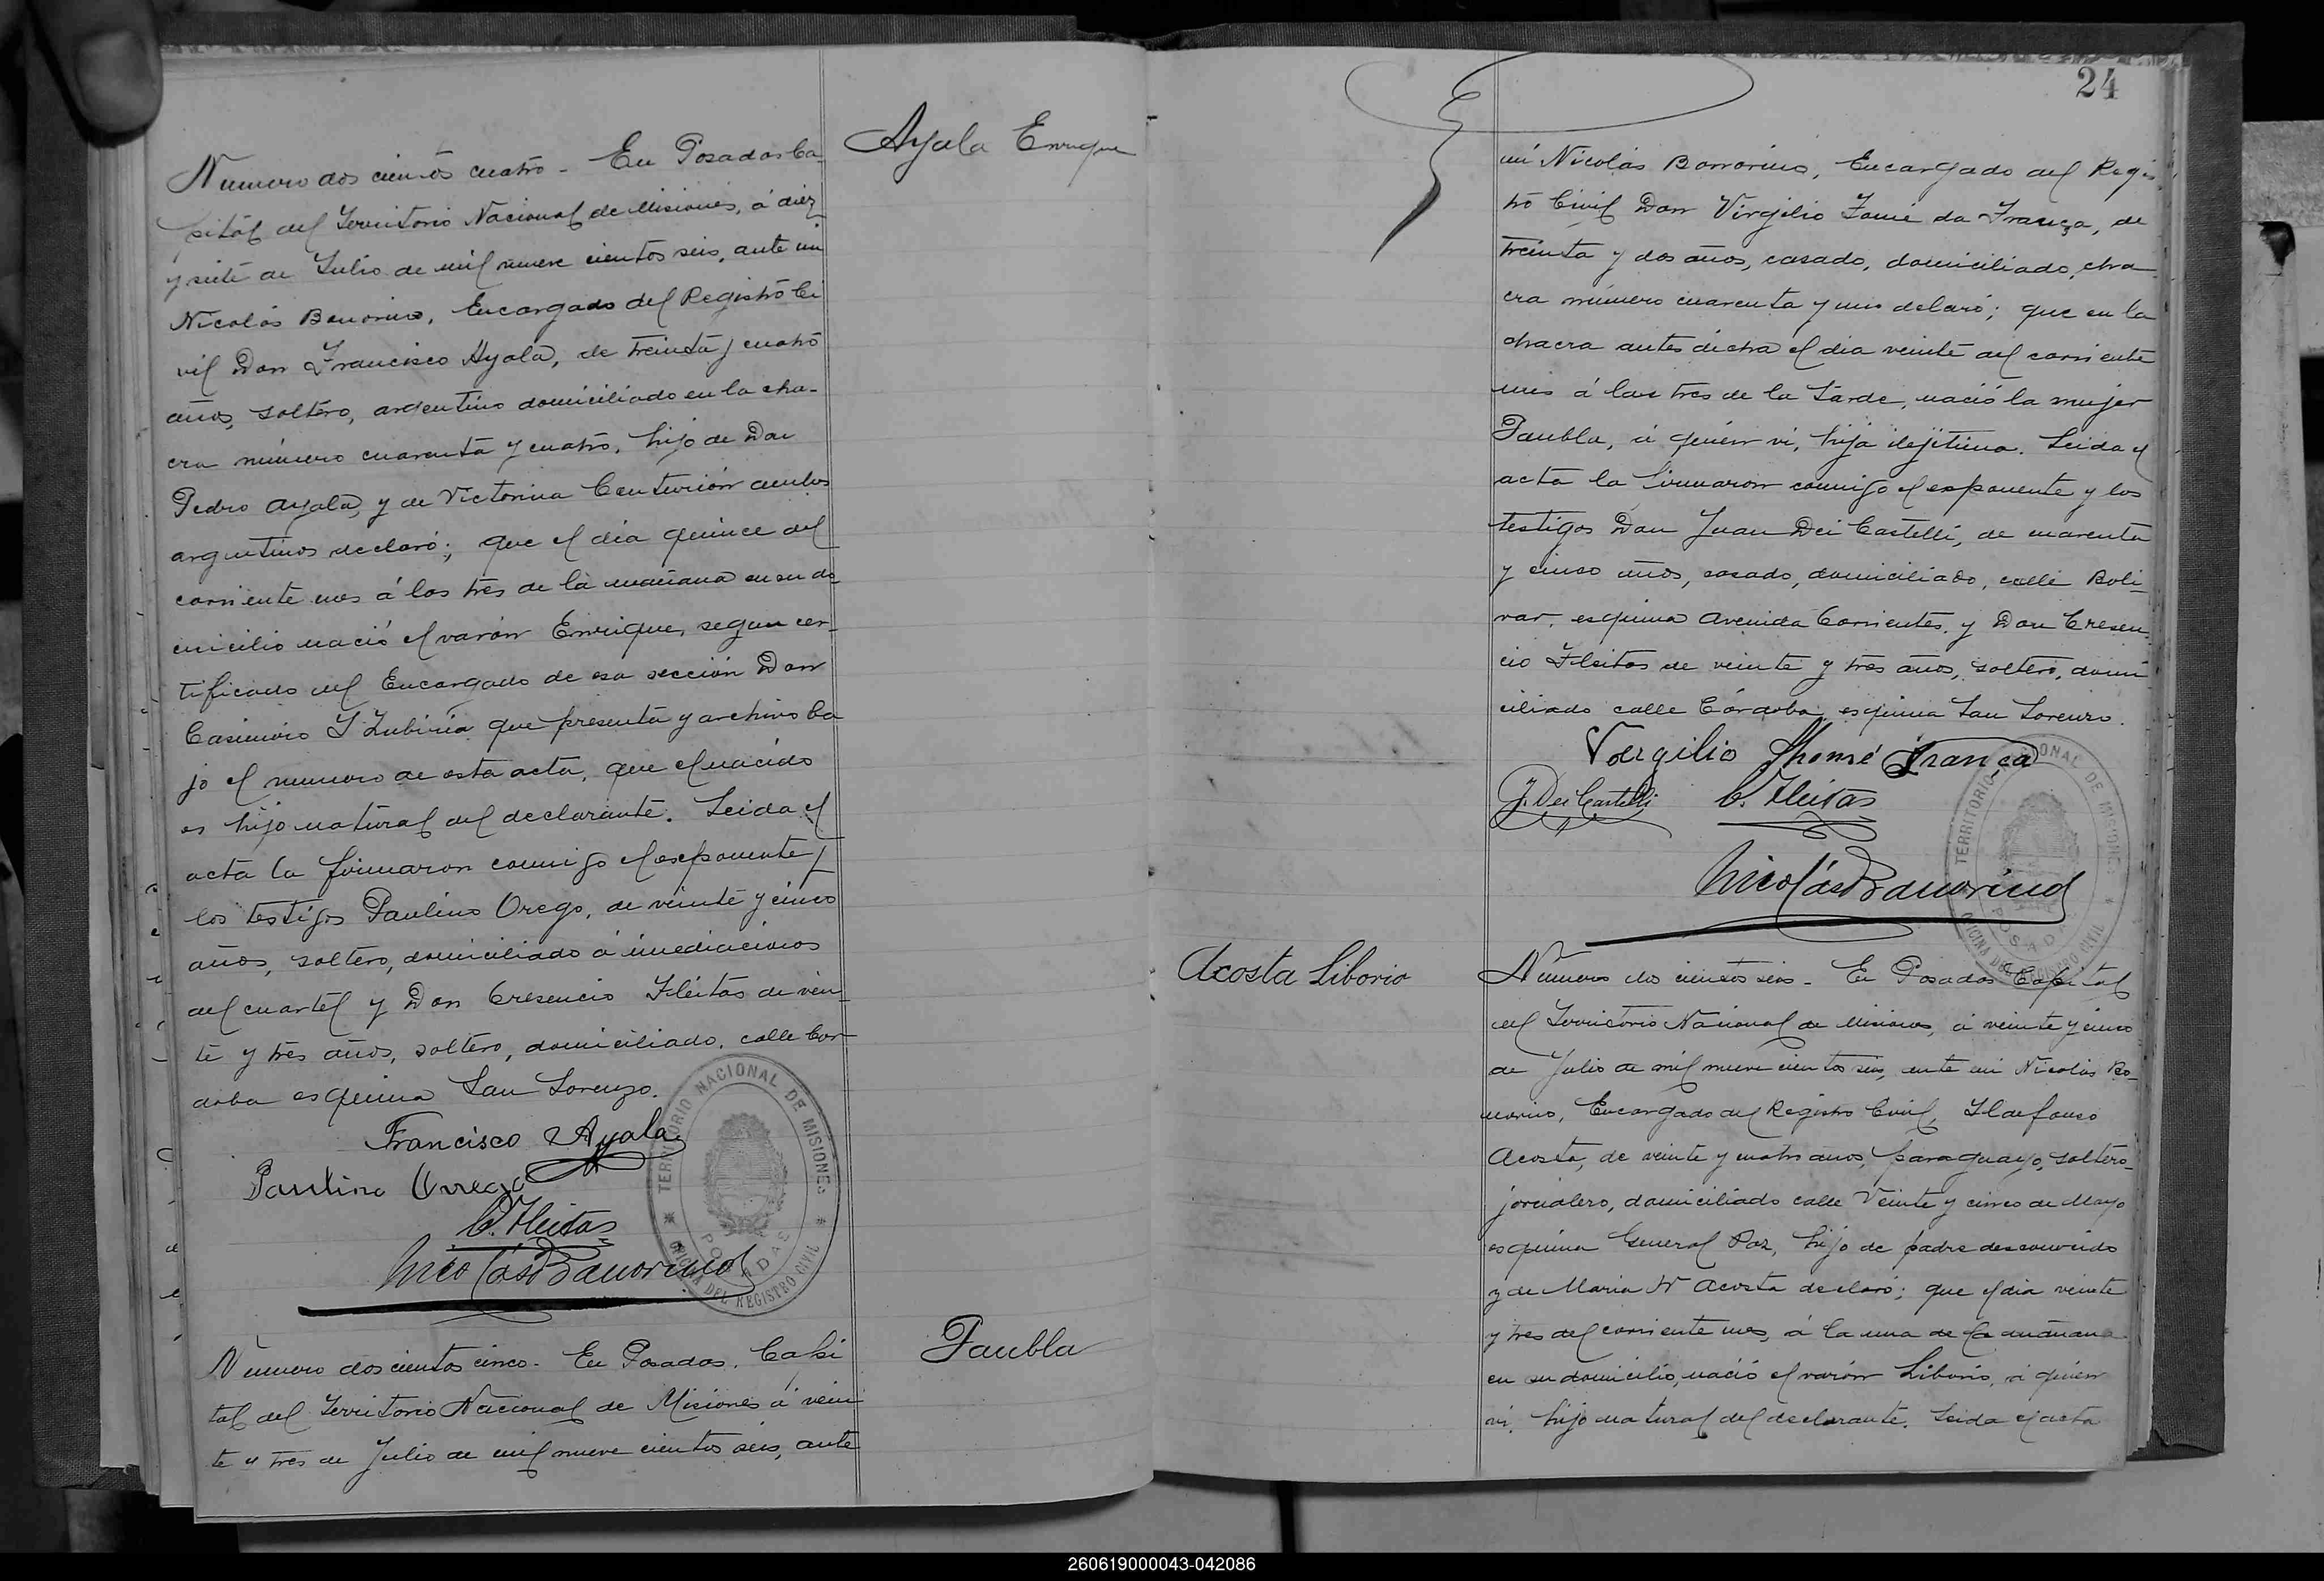 Ayala Enrique
Numero dos cientos cuatro - En Posadas Ca
pital del Territorio Nacional de Misiones, á diez
y siete de Julio de mil nueve cientos seis, ante mi
Nicolás Bonorino, Encargado del Registro Ci
vil Don Francisco Ayala, de treinta y cuatro
años, soltero, argentino domiciliado en la cha-
cra número cuarenta y cuatro, hijo de Don
Pedro Ayala, y de Victorina Centurión ambos
argentinos declaró; que el dia quince del
corriente mes á las tres de la mañana en su do
micilio nació el varón Enrique, segun cer-
tificado del Encargado de esa sección Don
Casimiro Zubiria que presenta y archivo ba
jo el numero de esta acta, que el nacido
es hijo natural del declarante. Leida el
acta la firmaron comigo el exponente y
los testigos Paulino Orego, de veinte y cinco
años, soltero, domiciliado á imediaciones
del cuartel y Don Cresencio Fleitas de vein
te y tres años, soltero, domiciliado, calle Cor
doba esquina San Lorenzo.
Francisco Ayala
Paulino Orrego
C. Fleitas
Nicolás Bonorino
TERRITORIO NACIONAL DE MISIONES
POSADAS
OFICINA DEL REGISTRO CIVIL
Paubla
Numero dos cientos cinco - En Posadas. Capi
tal del Territorio Nacional de Misiones á vein
te y tres de Julio de mil nueve cientos seis, ante
24
mi Nicolás Bonorino, Encargado del Regis
tro Civil Don Virgilio Tomé da França, de
treinta y dos años, casado, domiciliado, cha
cra número cuarenta y uno declaró; que en la
chacra antes dicha el dia veinte del corriente
mes á las tres de la tarde, nació la mujer
Paubla, á quien vi, hija ilejitima. Leida el
acta la firmaron comigo el exponente y los
testigos Don Juan Dei Castelli, de cuarenta
y cinco años, casado, domiciliado, calle Boli-
var, esquina Avenida Corrientes, y Don Cresen
cio Fleitas de veinte y tres años, soltero, domi
ciliado calle Córdoba, esquina San Lorenzo.
Vergilio Thomé França
J. Dei Castelli C. Fleitas
Nicolás Bonorino
TERRITORIO NACIONAL DE MISIONES
POSADAS
OFICINA DEL REGISTRO CIVIL
Acosta Liborio
Número dos cientos seis - En Posadas Capital
del Territorio Nacional de Misiones, á veinte y cinco
de Julio de mil nueve cientos seis, ante mi Nicolás Bo-
norino, Encargado del Registro Civil, Ildefonso
Acosta, de veinte y cuatro años, paraguayo, soltero-
jornalero, domiciliado calle Veinte y cinco de Mayo
esquina General Paz, hijo de padre desconocido
y de Maria N Acosta declaró; que el dia veinte
y tres del corriente mes, á la una de la mañana
en su domicilio, nació el varón Liborio, á quien
vi, hijo natural del declarante. Leida el acta
260619000043-042086